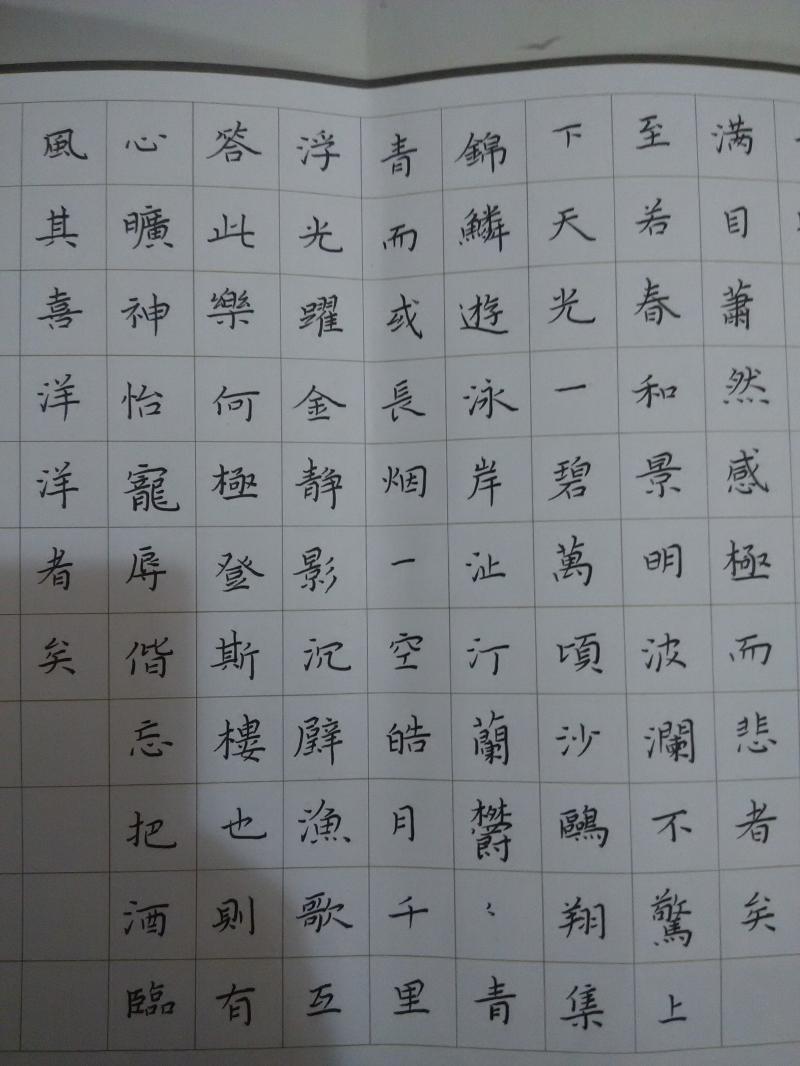 满目蕭然感極而悲者矣
至若春和景明波瀾不驚上
下天光一碧萬頃沙鷗翔集
錦鱗遊泳岸沚汀蘭欝〻青
青而或長烟一空皓月千里
浮光躍金静影沉璧漁歌互
答此樂何極登斯樓也則有
心曠神怡寵辱偕忘把酒臨
風其喜洋洋者矣